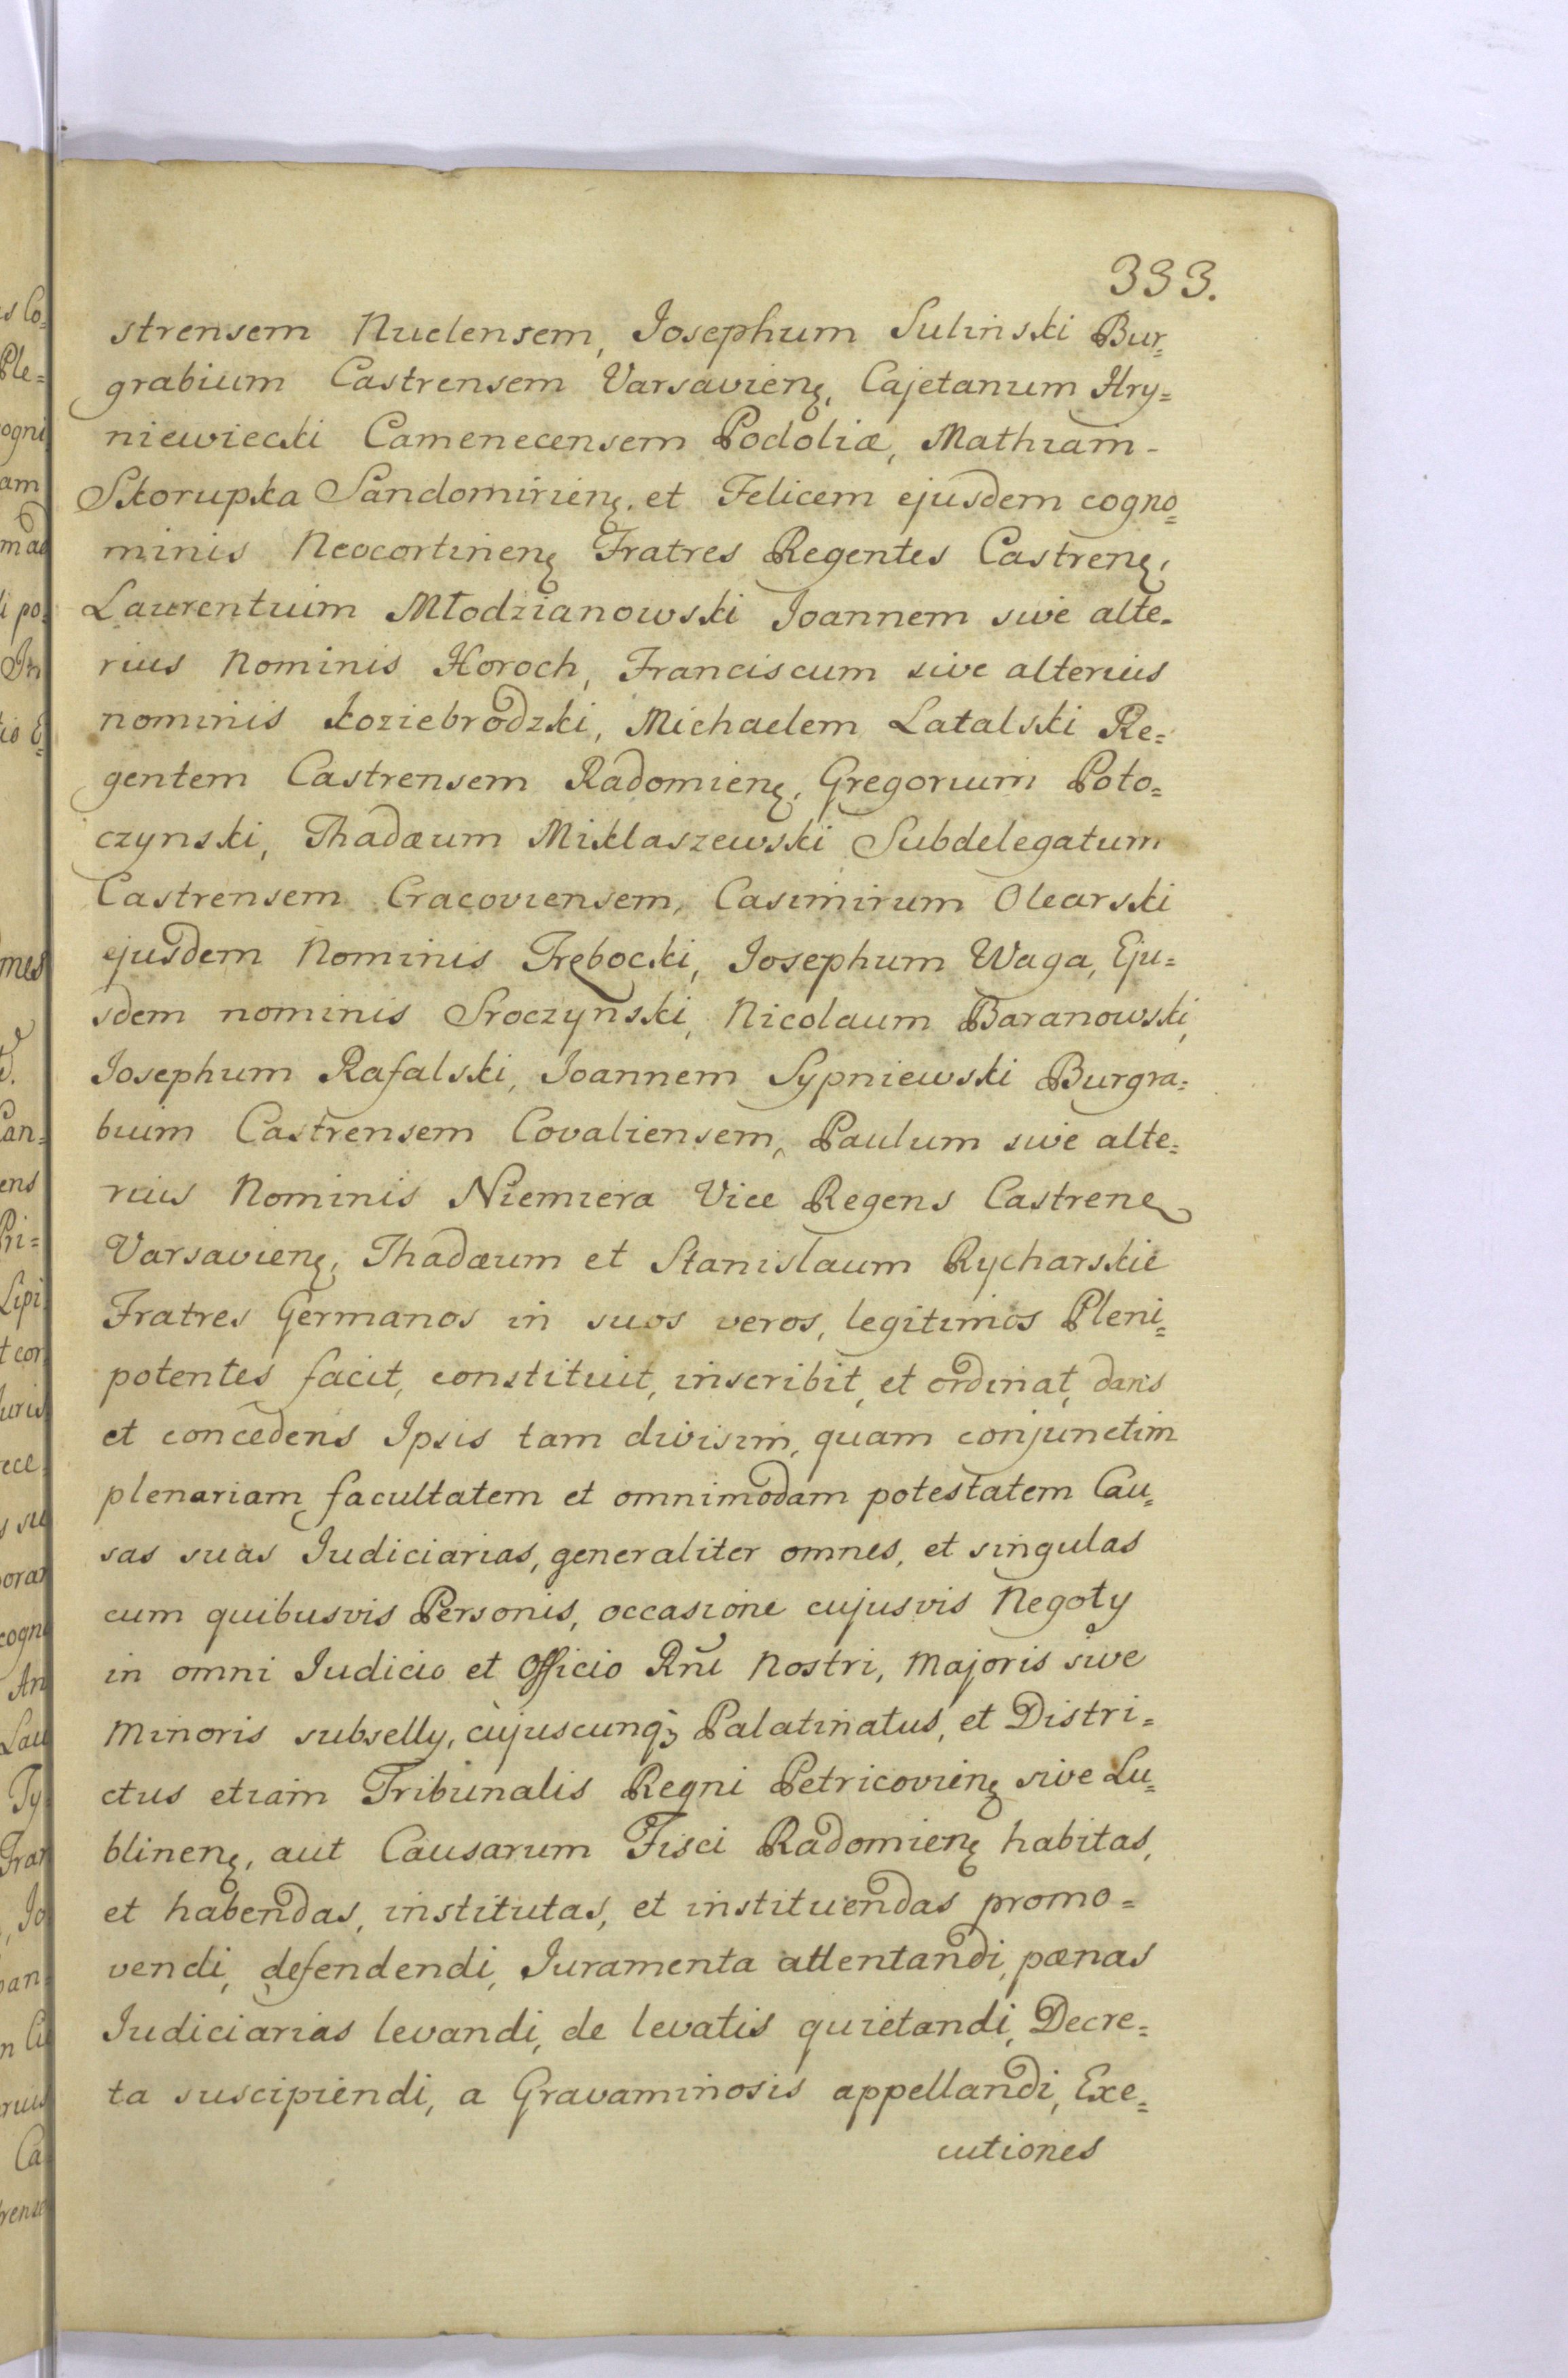 333.
strensem Nuelensem, Josephum Sulinski Bur=
grabium Castrensem Varsavienȩ, Cajetanum Hry=
niewiecki Camenecensem Podoliæ, Mathiam -
Skorupka Sandomirienȩ. et Felicem ejusdem cogno=
minis Neocortinenȩ Fratres Regentes Castrenȩ,
Laurentium Młodzianowski Joannem sive alte=
rius Nominis Horoch, Franciscum sive alterius
nominis Koziebrodzki, Michaelem Latalski Re=
gentem Castrensem Radomienȩ, Gregorium Poto=
czynski, Thadæum Miklaszewski Subdelegatum
Castrensem Cracoviensem, Casimirum Olearski
ejusdem Nominis Trębocki, Josephum Waga, Eju=
sdem nominis Sroczyński, Nicolaum Baranowski,
Josephum Rafalski, Joannem Sypniewski Burgra=
bium Castrensem Covaliensem, Paulum sive alte=
rius Nominis Niemiera Vice Regens Castrenȩ
Varsavienȩ, Thadæum et Stanislaum Rycharskie
Fratres Germanos in suos veros, legitimos Pleni=
potentes facit, constituit, inscribit, et ordinat, dans
et concedens Ipsis tam divisim, quam conjunctim
plenariam facultatem et omnimodam potestatem Cau=
sas suas Judiciarias, generaliter omnes, et singulas
cum quibusvis Personis, occasione cujusvis Negoty
in omni Judicio et Officio Rñi Nostri, Majoris sive
Minoris subselly, cujuscunqꝫ Palatinatus, et Distri=
ctus etiam Tribunalis Regni Petricovienȩ sive Lu=
blinenȩ, aut Causarum Fisci Radomienȩ habitas,
et habendas, institutas, et instituendas promo=
vendi, defendendi, Juramenta attentandi, pœnas
Judiciarias levandi, de levatis quietandi, Decre=
ta suscipiendi, a Gravaminosis appellandi, Exe=
cutiones